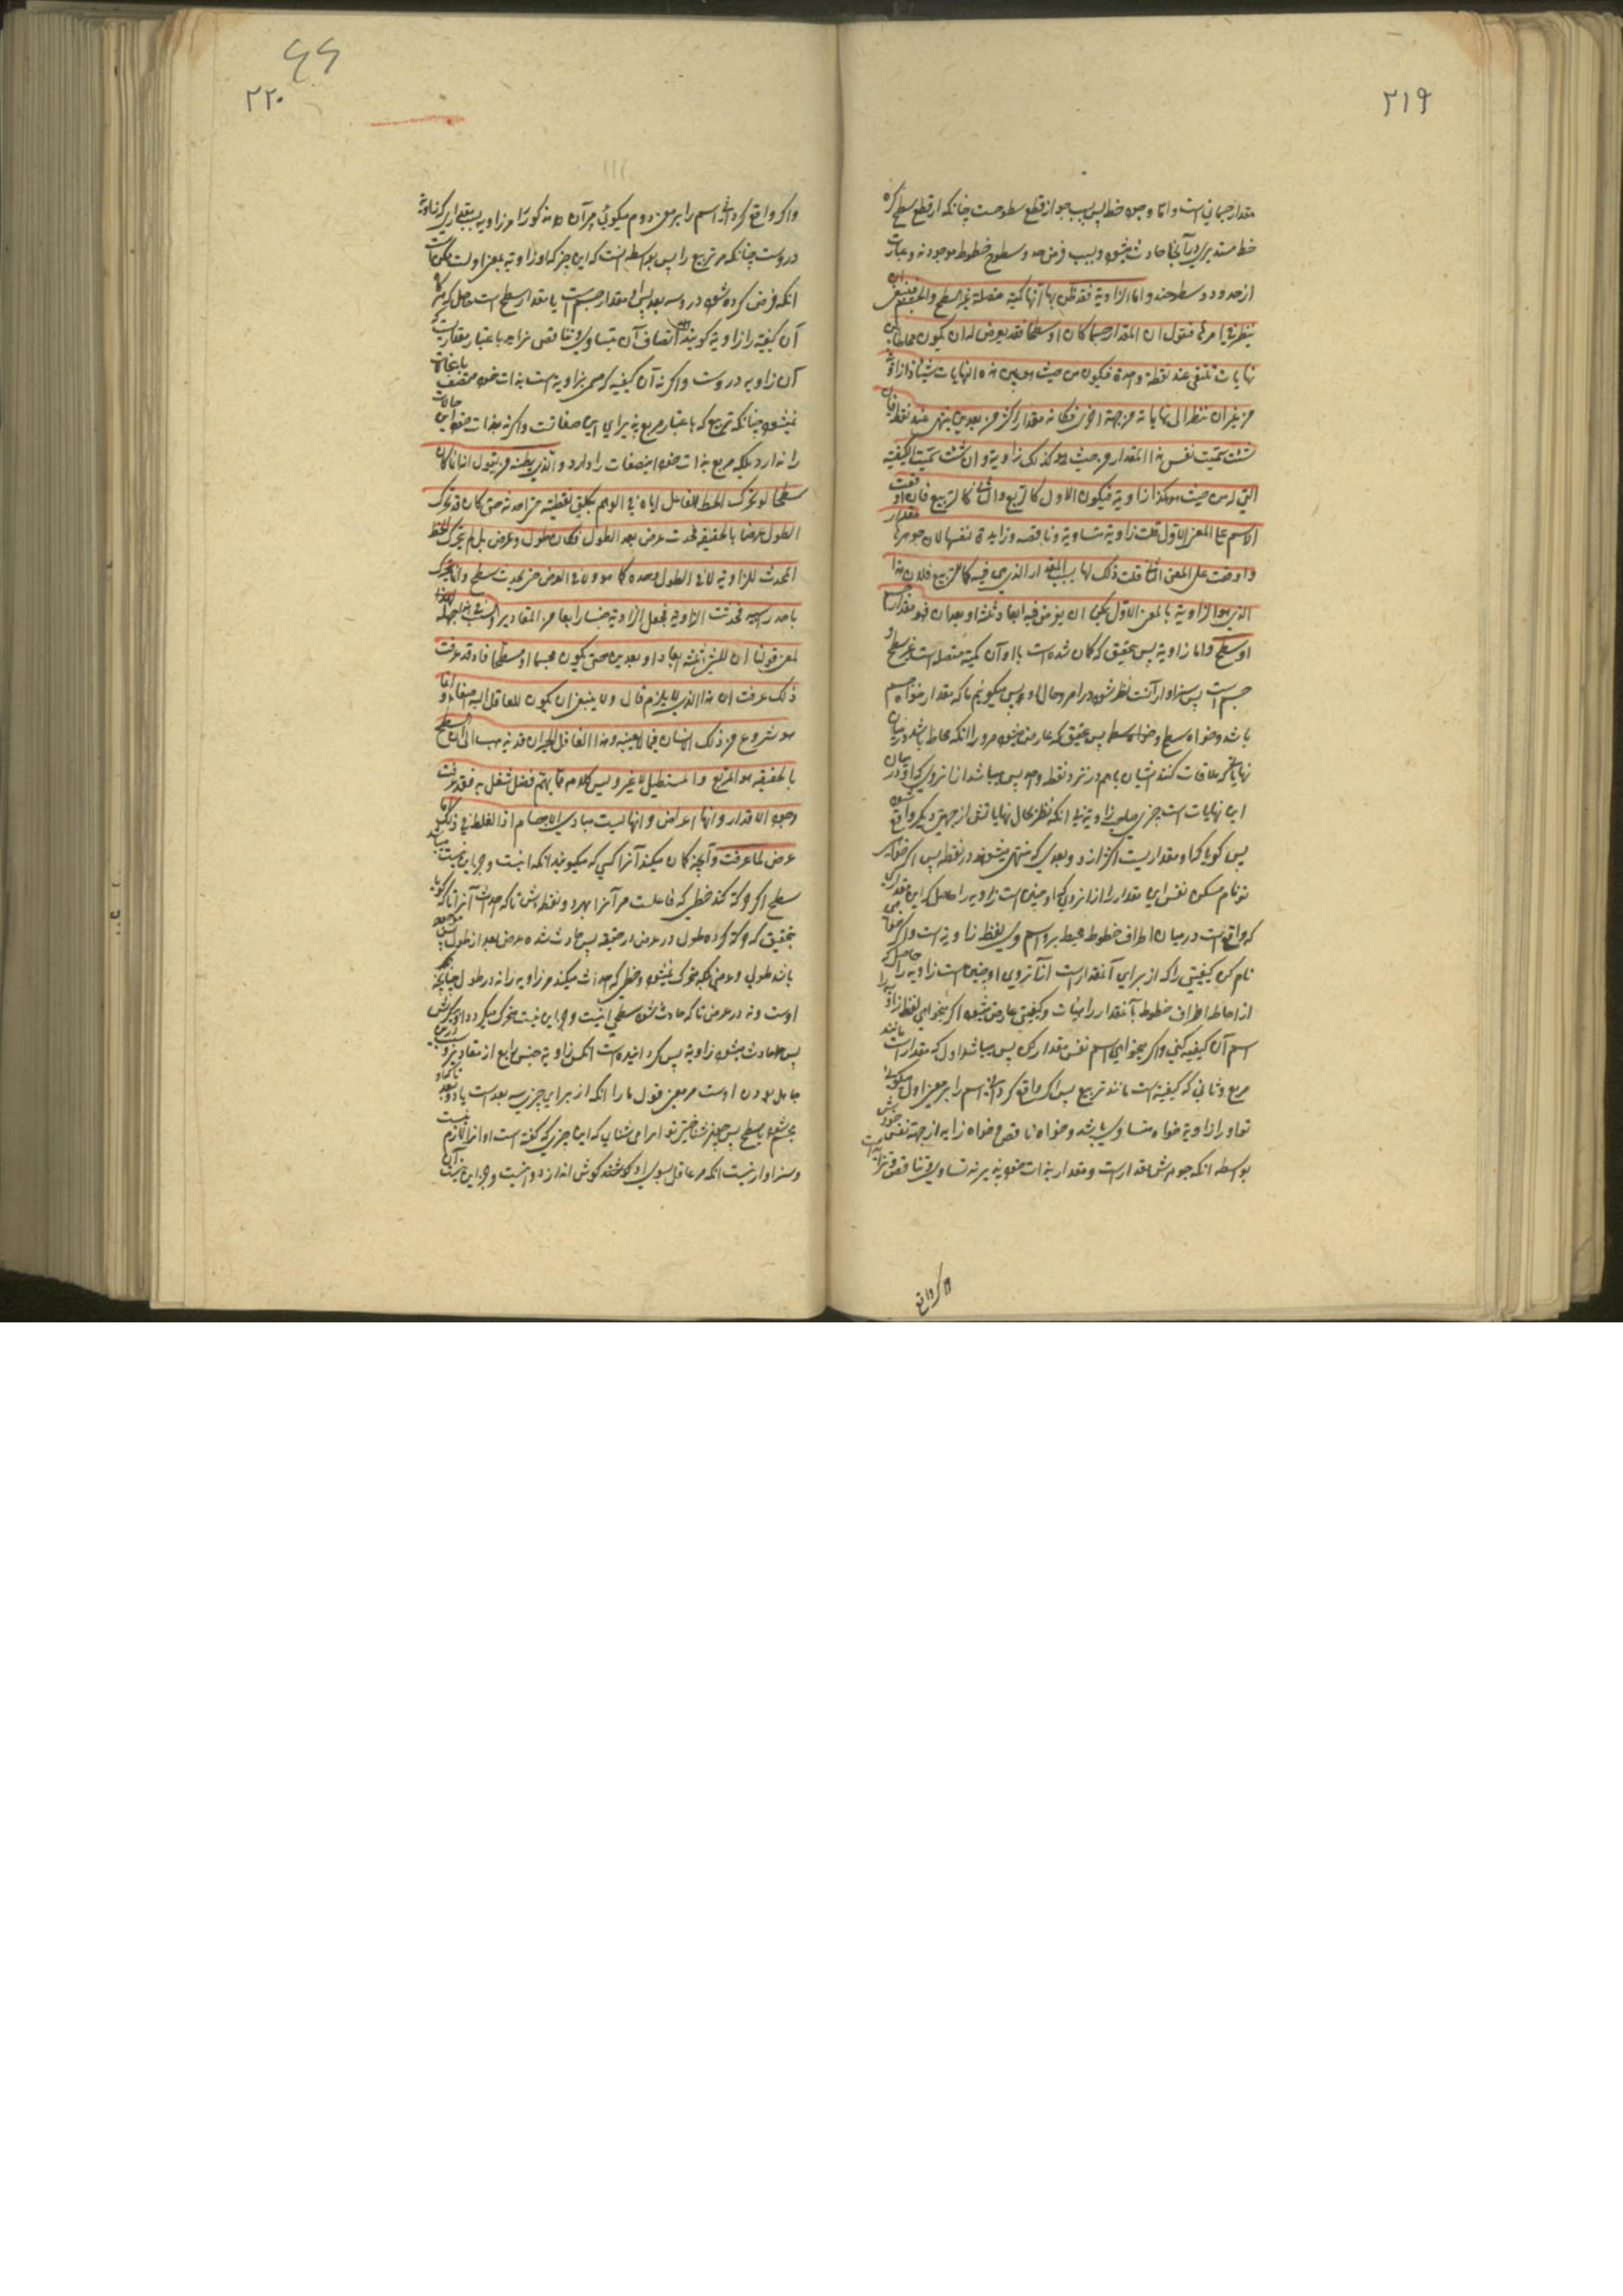 ۲۱۹
مقدار جسمانی است و اما وجود خط پس بسبب جواز قطع سطوحست چنانکه از قطع سطح کره
خط مستدیری در آنجا حادث میشود و بسبب فرض حدود سطوح خطوط موجودند و عبارت
از حدود سطوحند و اما الزاویة فقد ظن بها انها کمیة متصلة غیر السطح و الجسم فینبغی ان
ینظر فی امرها فنقول ان المقدار جسما کان او سطحا فقد یعرض له ان یکون محاطا بین
نهایات تلتقی عند نقطة واحدة فیکون من حیث هو بین هذه النهایات شیئا ذا زاویة
من غیر ان ینظر الی نهایاته من جهة اخری فکانه مقدار اکثر من بعدین ینتهی عند نقطة فان
شئت سمیت نفس هذا المقدار من حیث هو کذلک زاویة و ان شئت سمیت الکیفیة
التی له من حیث هو هکذا زاویة فیکون الاول کالمربع و الثانی کالتربیع فان اوقعت
الاسم علی المعنی الاول قلت زاویة مساویة و ناقصة و زایدة لنفسها لان جوهرها مقدار
و اوقعت علی المعنی الثانی قلت ذلک لها بسبب المقدار الذی هی فیه کما للتربیع فلان هذا
الذی هو الزاویة بالمعنی الاول یمکن ان یفرض فیه ابعاد ثلثة او بعدان فهو مقدار جسم
او سطح و اما زاویة پس بتحقیق که گمان شده است با او آن کمیة متصله است غیر سطح و
جسم است پس سزاوار آنست نظر شود در امر و حال او پس میگوئیم ما که مقدار خواه جسم
باشد و خواه سطح پس بتحقیق که عارض میشود مر او را آنکه محاط باشد در میان
نهایاتی که ملاقات کنند ایشان باهم در نزد نقطه واحده پس میباشد از آنروی که او در میان
این نهایات است چیزی صاحب زاویة بی انکه نظر بحال نهایاتش از جهتی دیگر واقع شود
پس گویا که او مقداریست اکثر از دو بعدی که منتهی میشوند در نقطه پس اگر خواهی
تو نام میکن نفس این مقدار را از آنروی که او چنین است زاویه را حاصل که این مقداری
که واقع است در میان اطراف خطوط محیط بر او اسم وی لفظ زاویة است و اگر خواهی
نام کن کیفیتی را که از برای آنمقدار است از آنروی او چنین است زاویه را حاصل که
از احاطه اطراف خطوط بآنمقدار را هیات و کیفیتی عارض میشود اگر بخواهی لفظ زاویه را
اسم آن کیفیه کنی و اگر بخواهی اسم نفس مقدار کن پس میباشد اول که مقدار است مانند
مربع و ثانی که کیفیة است مانند تربیع پس اگر واقع گردانی اسم را بر معنی اول میگوئی
تو او را زاویة خواه مساوی باشد و خواه ناقص و خواه زاید از جهة نفس خودش
بواسطه انکه جوهرش مقدار است و مقدار بذات خود پذیرنده تساوی و تناقص و تزاید است
و اگر واقع
۶۶
۲۲۰
و اگر واقع گردانی اسم را بر معنی دوم میگوئی مر آن مذکور را مر زاویه بسبب مقداری که زاویة
در اوست چنانکه مر تربیع را پس بواسطه انست که این چیز که او زاویه بمعنی اولست ممکن است
انکه فرض کرده شود در او سه بعد پس او مقدار جسم است یا مقدار سطح است حاصل که هرگاه
آن کیفیة را زاویة گویند اتصاف آن بتساوی و تناقص و تزاید باعتبار مقداریست که
آن زاویه در اوست و اگرنه آن کیفیه که مسمی بزاویه است بذات خود متصف باینحالات
نمیشود چنانکه تربیع که باعتبار مربع پذیرای این صفاتست و اگرنه بذات خود این حالات
را ندارد بلکه مربع بذات خود اینصفات را دارد و الذی یظنه من یقول انها انما کان
سطحا لو تحرک الخط الفاعل ایاه فی الوهم بکلی نقطیته من اخره حتی کان قد تحرک
الطول عرضا بالحقیقة فحدث عرض بعد الطول فکان طول و عرض بل لم یتحرک الخط
المحدث للزاویة لا فی الطول وحده کما هو و لا فی العرض حتی یحدث سطح و انما تحرک
باحد راسیه فحدثت الزاویة فجعل الزاویة جنسا رابعا من المقادیر و السبب فی هذا جهله
لمعنی قولنا ان للشیء ثلثة ابعاد او بعدین حتی یکون مجسما او مسطحا فاذ قد عرفت
ذلک عرفت ان هذا الذی لا یلزم قال و لا ینبغی ان یکون للعاقل الیه اصغاء و انما
هو شروع من ذلک الانسان فیما لا یعنیه و هذا الغافل الحیران قد ذهب الی ان السطح
بالحقیقه هو المربع و المستطیل لا غیر و لیس کلامه مما یهتم فضل شغل به فقد عرفت
وجود الاقدار و انها اعراض و انها لیست مبادی الاجسام اذ الغلط فی ذلک انما
عرض لما عرفت و آنچه گمان میکند آنرا کسی که میگوید آنکه انیست و جز این نیست میباشد
سطح اگر حرکة کند خطی که فاعلست مر آنرا بهر دو نقطه اش تا که احداث آنرا تا که گویا
بتحقیق که حرکة کرده طول در عرض در حقیقه پس حادث شده عرض بعد از طول پس موجود
باشد طولی و عرضی بلکه متحرک نمیشود خطی که احداث میکند مر زاویه را نه در طول چنانچه
اوست و نه در عرض تا که حادث شود سطحی انیست و جز این نیست متحرک میگردد بیکی سرش
پس حادث میشود زاویة پس گردانیده است انکس زاویة جنس رابع از مقادیر و سبب در این
جاهل بودن اوست مر معنی قول ما را انکه از برای چیزی سه بعد است یا دو بعد تا که او
مجسم شود یا سطح پس چون شناختی تو امر این شناسی که این چیزی که گفته است او انرا لازم نیست
و سزاوار نیست انکه مر عاقل بسوی او گوشی اندازد و انیست و جز این نیست